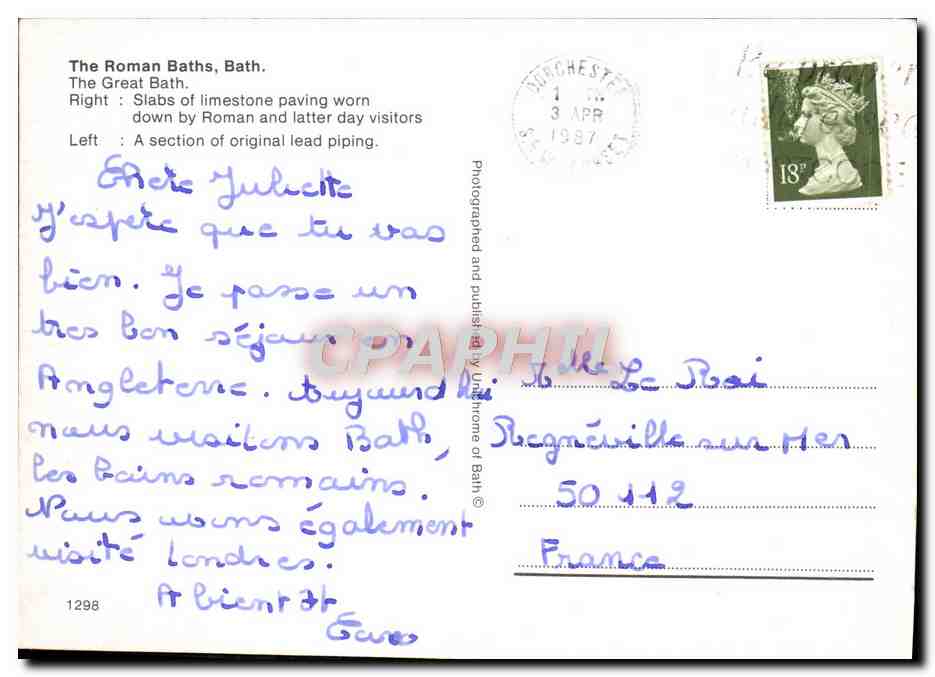 The Roman Baths, Bath.
The Great Bath.
Right : Slabs of limestone paving worn
down by Roman and latter day visitors
Left : A section of original lead piping.
Chère Juliette
J'espère que tu vas
bien. Je passe un
tres bon séjour en
Angleterre. Aujourd'hui
nous visitons Bath,
les bains romains.
Nous avons également
visité Londres.
A bientôt
1298
Photographed and published by Unichrome of Bath ©
DORCHESTER
3 APR
1987
DORSET
18P
CPAPHIL
Mlle Le Roi
Regnéville sur Mer
50 112
France